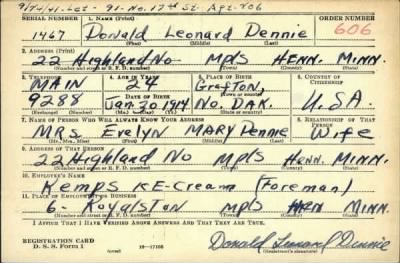 9/24/41-Lct - 91-No. 17th St. Apt. 406
SERIAL NUMBER 1. NAME (Print) ORDER NUMBER
1467 Donald Leonard Dennie 606
(First) (Middle) (Last)
2. ADDRESS (Print)
22 Highland No - Mpls HENN. MINN.
(Number and street or R. F. D. number) (Town) (County) (State)
3. TELEPHONE 4. AGE IN YEARS 5. PLACE OF BIRTH 6. COUNTRY OF CITIZENSHIP
MAIN 24 Grafton,
DATE OF BIRTH (Town or county)
9288 Jan. 20 1917 No. DAK. U.S.A.
(Mo.) (Day) (Yr.) (State or country)
7. NAME OF PERSON WHO WILL ALWAYS KNOW YOUR ADDRESS 8. RELATIONSHIP OF THAT PERSON
MRS Evelyn MARY Dennie Wife
(Mr., Mrs., Miss) (First) (Middle) (Last)
9. ADDRESS OF THAT PERSON
22 Highland No Mpls Henn. MINN.
(Number and street or R. F. D. number) (Town) (County) (State)
10. EMPLOYER'S NAME
Kemps ICE-Cream (Foreman)
11. PLACE OF EMPLOYMENT OR BUSINESS
6 - Royalston Mpls HEN MINN.
(Number and street or R. F. D. number) (Town) (County) (State)
I AFFIRM THAT I HAVE VERIFIED ABOVE ANSWERS AND THAT THEY ARE TRUE.
REGISTRATION CARD
D. S. S. Form 1 16-17105 Donald Leonard Dennie
(Registrant's signature)